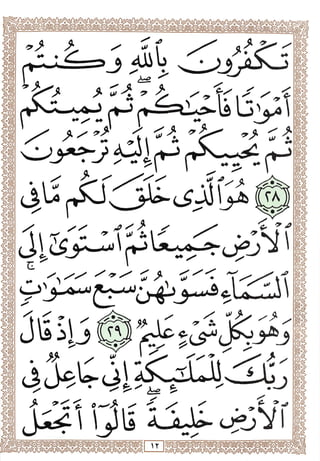 تَكْفُرُونَ بِٱللَّهِ وَكُنتُمْ
أَمْوَٰتًا فَأَحْيَٰكُمْ ۖ ثُمَّ يُمِيتُكُمْ
ثُمَّ يُحْيِيكُمْ ثُمَّ إِلَيْهِ تُرْجَعُونَ
٢٨ هُوَ ٱلَّذِى خَلَقَ لَكُم مَّا فِى
ٱلْأَرْضِ جَمِيعًا ثُمَّ ٱسْتَوَىٰٓ إِلَى
ٱلسَّمَآءِ فَسَوَّىٰهُنَّ سَبْعَ سَمَٰوَٰتٍ ۚ
وَهُوَ بِكُلِّ شَىْءٍ عَلِيمٌ ٢٩ وَإِذْ قَالَ
رَبُّكَ لِلْمَلَٰٓئِكَةِ إِنِّى جَاعِلٌ فِى
ٱلْأَرْضِ خَلِيفَةً ۖ قَالُوٓا۟ أَتَجْعَلُ
١٢